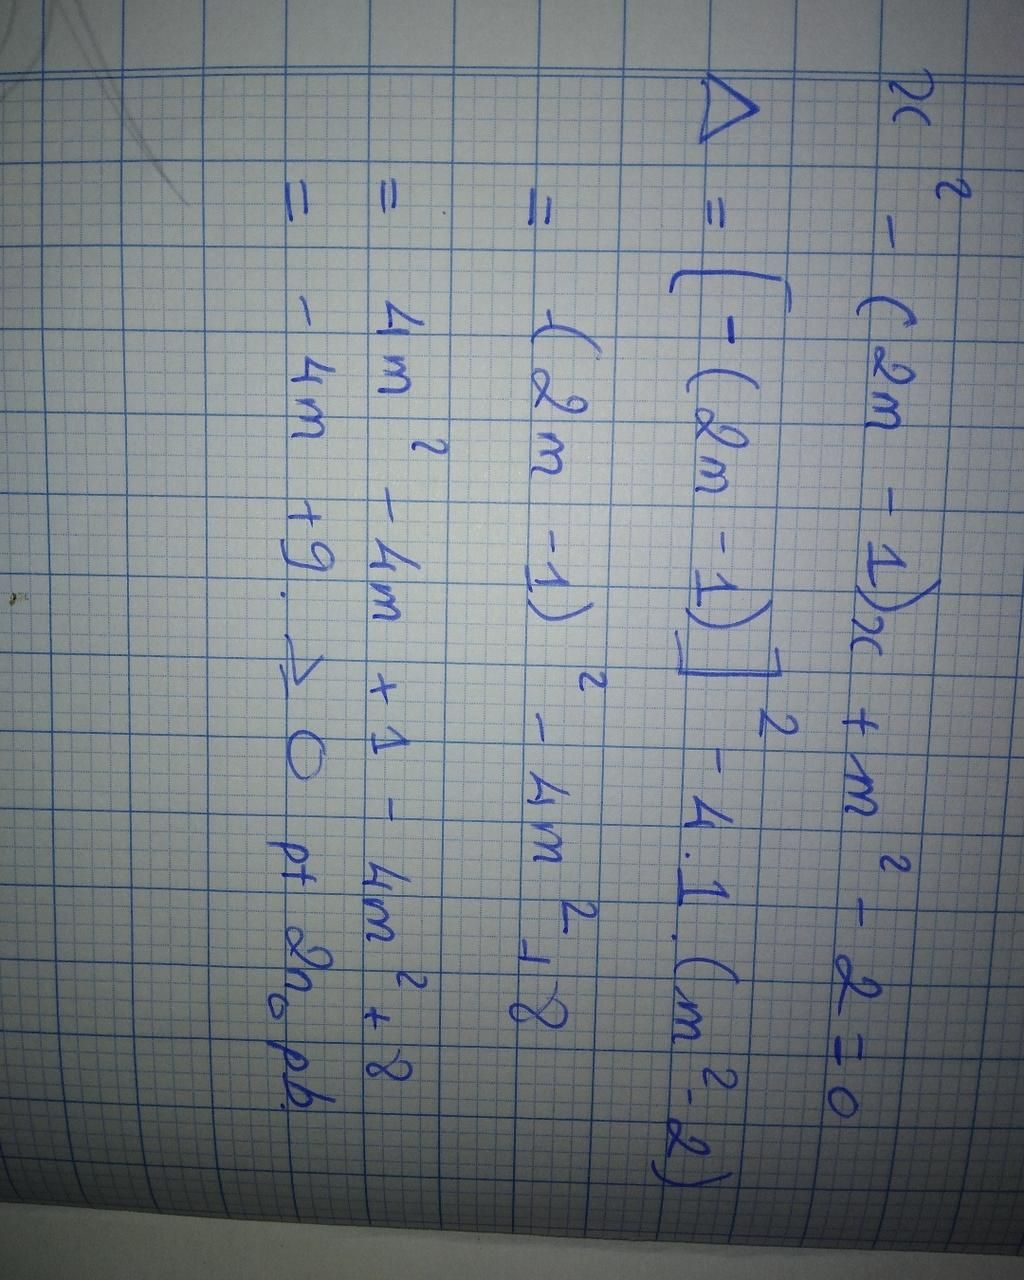 x² - (2m - 1)x + m² - 2 = 0
Δ = [-(2m - 1)]² - 4.1.(m² - 2)
= (2m - 1)² - 4m² + 8
= 4m² - 4m + 1 - 4m² + 8
= - 4m + 9. ≥ 0 pt 2n₀ pb.